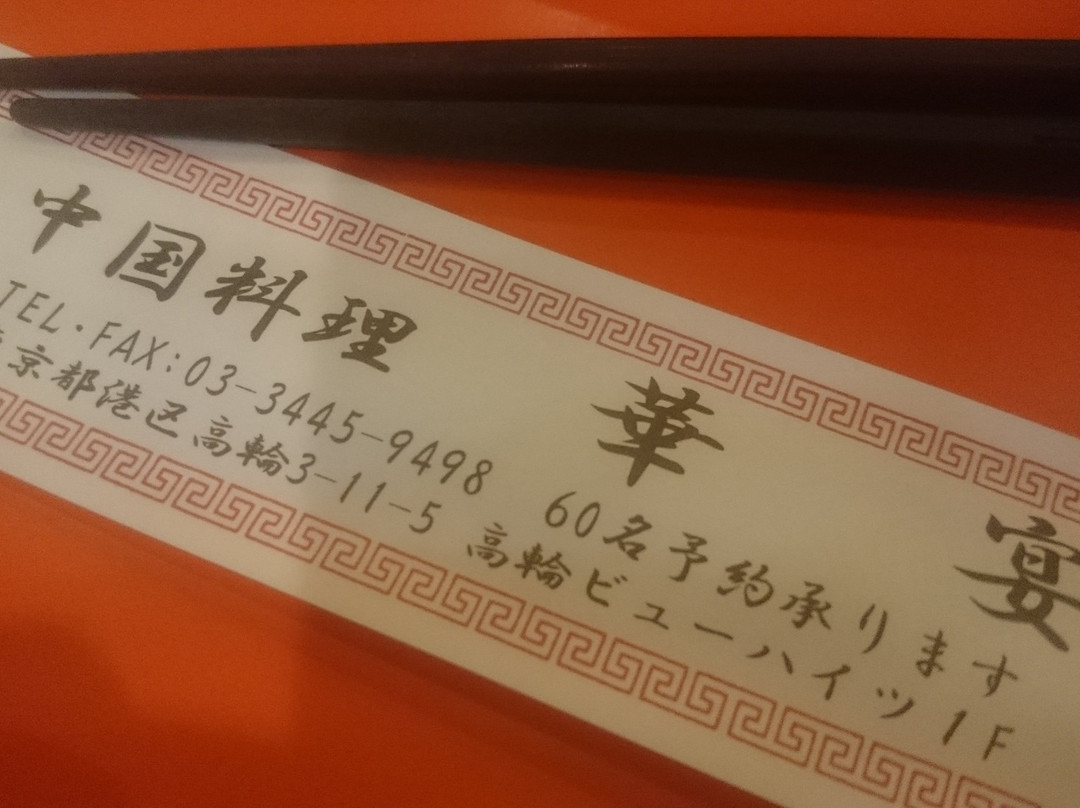 中国料理 華 宴
TEL・FAX:03-3445-9498 60名予約承ります
京都港区高輪3-11-5 高輪ビューハイツ1F